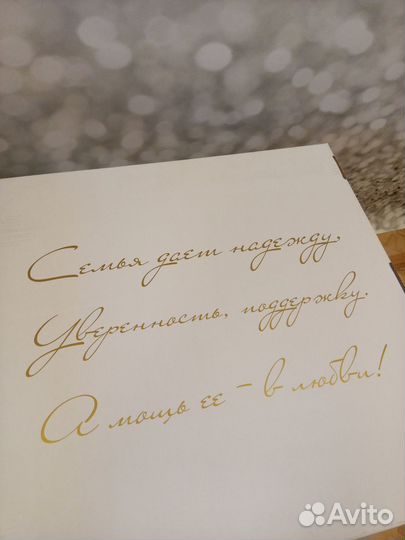 Семья дает надежду,
Уверенность, поддержку.
А мощь ее – в любви!
Avito